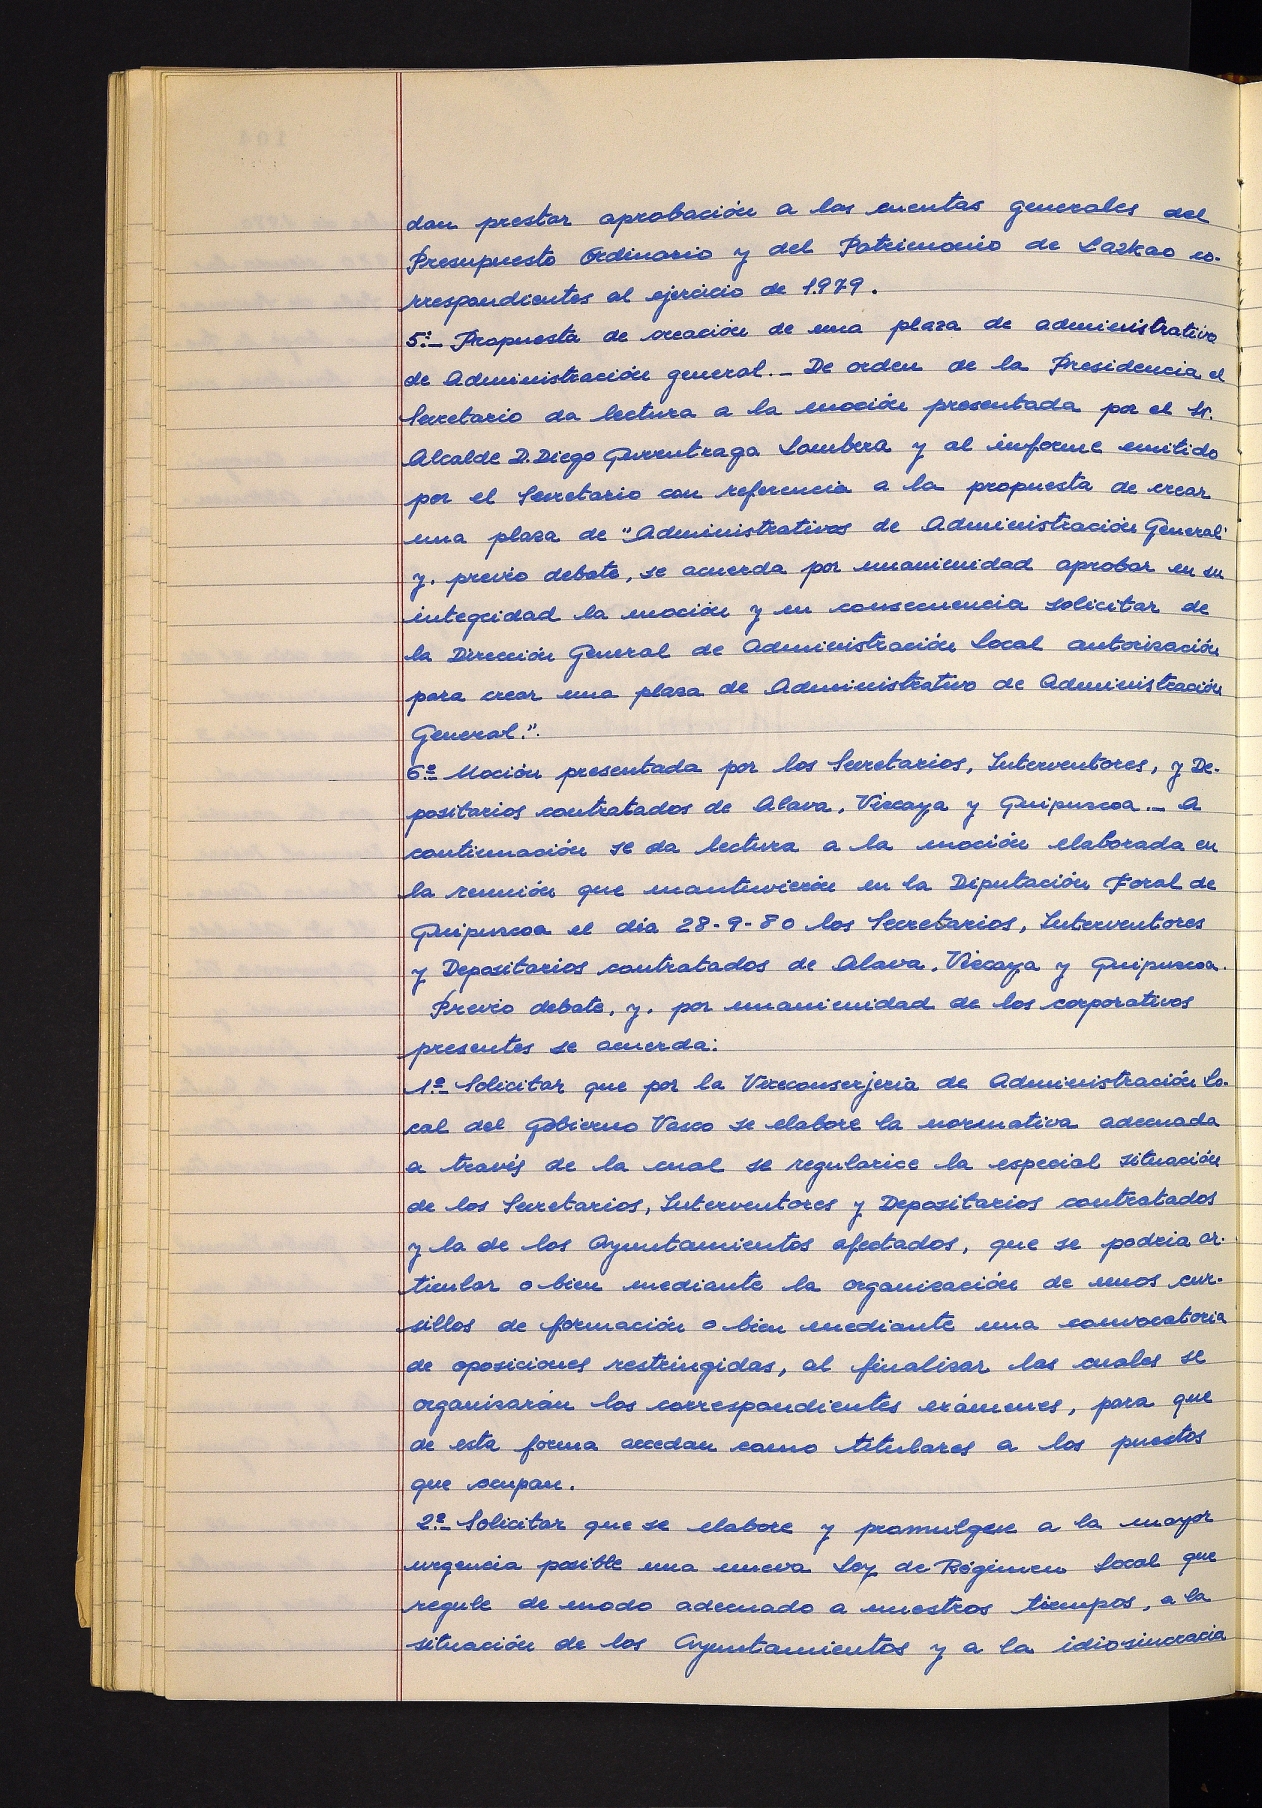 dan prestar aprobación a las cuentas generales del
Presupuesto Ordinario y del Patrimonio de Lazkao co-
rrespondientes al ejercicio de 1.979.
5º.- Propuesta de creación de una plaza de administrativo
de Administración general.- De orden de la Presidencia el
Secretario da lectura a la moción presentada por el Sr.
Alcalde D. Diego Gurrutxaga Lambera y al informe emitido
por el Secretario con referencia a la propuesta de crear
una plaza de "Administrativos de Administración General"
y, previo debate, se acuerda por unanimidad aprobar en su
integridad la moción y en consecuencia solicitar de
la Dirección General de Administración Local autorización
para crear una plaza de Administrativo de Administración
General.".
6º- Moción presentada por los Secretarios, Interventores, y De-
positarios contratados de Alava, Vizcaya y Guipuscoa.- A
continuación se da lectura a la moción elaborada en
la reunión que mantuvierón en la Diputación Foral de
Guipuscoa el día 28-9-80 los Secretarios, Interventores
y Depositarios contratados de Alava, Vizcaya y Guipuscoa.
Previo debate, y, por unanimidad de los corporativos
presentes se acuerda:
1º- Solicitar que por la Viceconserjeria de Administración Lo-
cal del Gobierno Vasco se elabore la normativa adecuada
a través de la cual se regularice la especial situación
de los Secretarios, Interventores y Depositarios contratados
y la de los Ayuntamientos afectados, que se podria ar-
ticular o bien mediante la organización de unos cur-
sillos de formación o bien mediante una convocatoria
de oposiciones restringidas, al finalizar las cuales se
organizarán los correspondientes exámenes, para que
de esta forma accedan como titulares a los puestos
que ocupan.
2º- Solicitar que se elabore y promulgue a la mayor
urgencia posible una nueva Ley de Régimen Local que
regule de modo adecuado a nuestros tiempos, a la
situación de los Ayuntamientos y a la idiosincracia